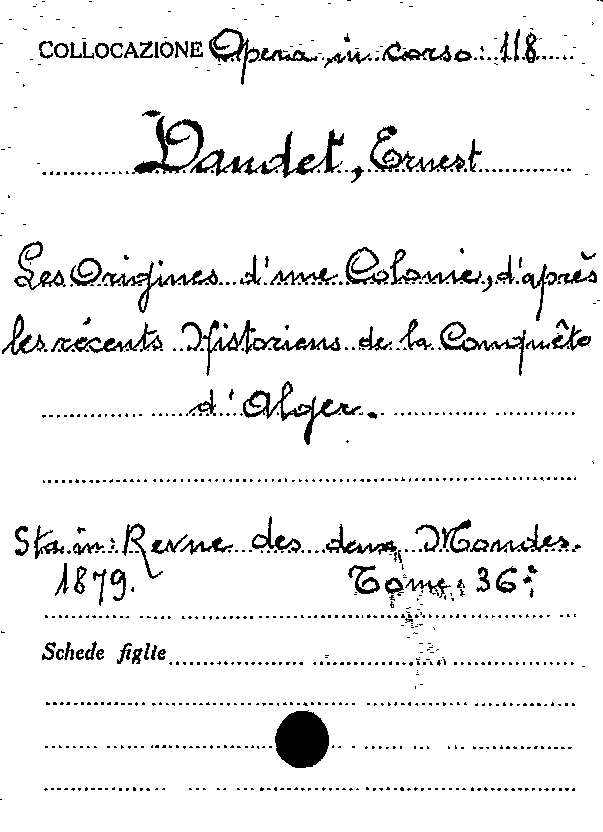 COLLOCAZIONE Opera in corso: 118
Daudet, Ernest
Les Origines d'une Colonie, d'après
les récents Historiens de la Conquête
d'Alger.
Sta in: Revue des deux Mondes.
1879. Tome: 36:
Schede figlie